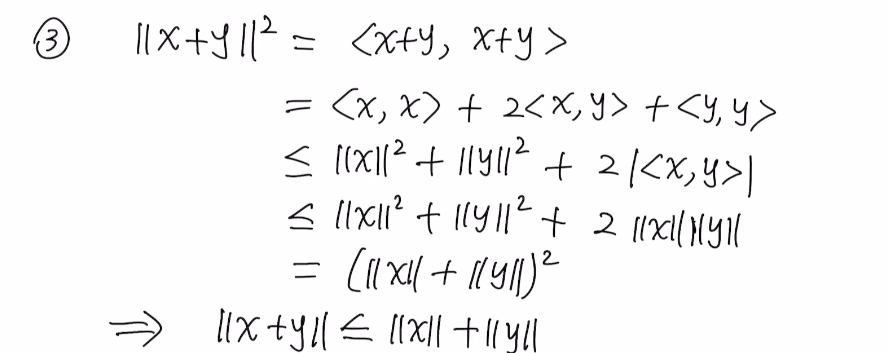 ③ ||x+y||² = <x+y, x+y>
= <x, x> + 2<x, y> + <y, y>
≤ ||x||² + ||y||² + 2|<x, y>|
≤ ||x||² + ||y||² + 2 ||x|| ||y||
= (||x|| + ||y||)²
⇒ ||x+y|| ≤ ||x|| + ||y||